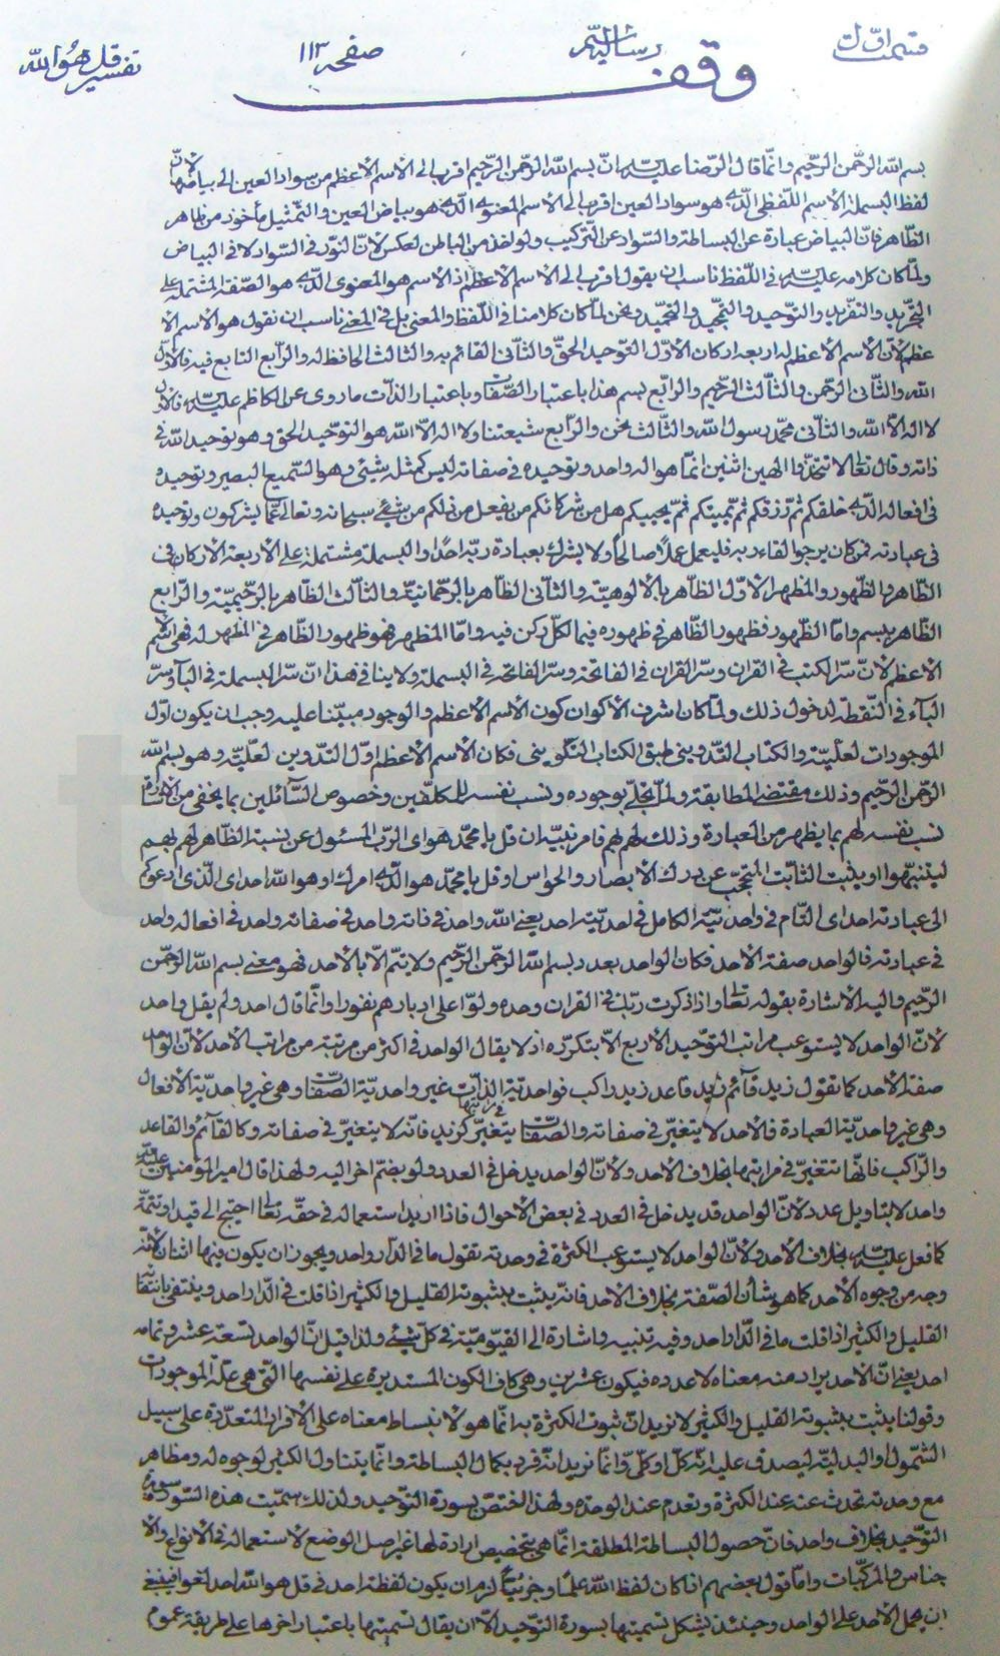 قسمت اول رسائلهم صفحه ۱۱۳ تفسیر قل هو الله
وقف
بسم الله الرحمن الرحیم وانما قال الرضا علیه ان بسم الله الرحمن الرحیم اقرب الی الاسم الاعظم من سواد العین الی بیاضها لان
لفظ البسملة الاسم اللفظی الذی هو سواد العین اقرب الی الاسم المعنوی الذی هو بیاض العین والتمثیل مأخوذ من ظاهر
الظاهر فان البیاض عبارة عن البساطة والسواد عن الترکیب ولو اخذ من الباطن لعکس لان النور فی السواد لا فی البیاض
ولما کان کلامه علیه فی اللفظ ناسب ان یقول اقرب الی الاسم الاعظم اذ الاسم هو المعنوی الذی هو الصفة المشتملة علی
التجرید والتفرید والتوحید والتمجید والتحمید ونحن لما کان کلامنا فی اللفظ والمعنی بل فی المعنی ناسب ان نقول هو الاسم الا
عظم لان الاسم الاعظم له اربعة ارکان الاول التوحید الحق والثانی القائم به والثالث الحافظ له والرابع التابع فیه فالاول
الله والثانی الرحمن والثالث الرحیم والرابع بسم هذا باعتبار الصفات وباعتبار الذات ما روی عن الکاظم علیه فالاول
لا اله الا الله والثانی محمد رسول الله والثالث نحن والرابع شیعتنا ولا اله الا الله هو التوحید الحق وهو توحید الله فی
ذاته وقال تعالی لا تتخذوا الهین اثنین انما هو اله واحد وتوحیده فی صفاته لیس کمثله شیئ وهو السمیع البصیر وتوحیده
فی افعاله الذی خلقکم ثم رزقکم ثم یمیتکم ثم یحییکم هل من شرکائکم من یفعل من ذلکم من شیئ سبحانه وتعالی عما یشرکون وتوحیده
فی عبادته فمن کان یرجوا لقاء ربه فلیعمل عملا صالحا ولا یشرک بعبادة ربه احدا والبسملة مشتملة علی الاربعة الارکان فی
الظاهر والظهور والمظهر الاول الظاهر بالالوهیة والثانی الظاهر بالرحمانیة والثالث الظاهر بالرحیمیة والرابع
الظاهر ببسم واما الظهور فظهور الظاهر فی ظهوره فیما لکل رکن فیه واما المظهر فهو ظهور الظاهر فی المظهر له فهی الاسم
الاعظم لان سر الکتب فی القران وسر القران فی الفاتحة وسر الفاتحة فی البسملة ولا ینافی هذا ان سر البسملة فی الباء وسر
الباء فی النقطة لدخول ذلک ولما کان اشرف الاکوان کون الاسم الاعظم والوجود مبینا علیه وجب ان یکون اول
الموجودات لعلیته والکتاب التدوینی طبق الکتاب التکوینی فکان الاسم الاعظم اول التدوین لعلیته وهو بسم الله
الرحمن الرحیم وذلک مقتضی المطابقة ولما تجلی بوجوده ونسب نفسه للمکلفین وخصوص السائلین بما یخفی من الاشارة
نسب نفسه لهم بما یظهر من العبارة وذلک لهم بهم فامر نبیه ان قل یا محمد هو ای الرب المسئول عن نسبة الظاهر لهم بهم
لیتنبهوا او یثبت الثابت المتحجب عن درک الابصار والحواس او قل یا محمد هو الذی امرک او هو الله احد ای الذی ادعوکم
الی عبادته احد ای التام فی واحدیته الکامل فی احدیته احد یعنی الله واحد فی ذاته واحد فی صفاته واحد فی افعاله واحد
فی عبادته فالواحد صفة الاحد فکان الواحد بعدد بسم الله الرحمن الرحیم ولا تتم الا بالاحد فهو معنی بسم الله الرحمن
الرحیم والیه الاشارة بقوله تعالی واذا ذکرت ربک فی القران وحده ولوا علی ادبارهم نفورا وانما قال احد ولم یقل واحد
لان الواحد لا یستوعب مراتب التوحید الاربع الا بتکرره اذ لا یقال الواحد فی اکثر من مرتبة من مراتب الاحد لان الواحد
صفة الاحد کما تقول زید قائم زید قاعد زید راکب فواحدیة الذات غیر واحدیة الصفات وهی غیر واحدیة الافعال
وهی غیر واحدیة العبادة فالاحد لا یتغیر فی صفاته والصفات یتغیر فی مراتبها کزید فانه لا یتغیر فی صفاته وکالقائم والقاعد
والراکب فانها تتغیر فی مراتبها بخلاف الاحد ولان الواحد یدخل فی العدد ولو بضم اخر الیه ولهذا قال امیر المؤمنین علیه
واحد لا بتاویل عدد لان الواحد قد یدخل فی العدد فی بعض الاحوال فاذا ارید استعماله فی حقه تعالی احتیج الی قید او تتمة
کما فعل علیه بخلاف الاحد ولان الواحد لا یستوعب الکثرة فی وحدته تقول ما فی الدار واحد ویجوز ان یکون فیها اثنان لانه
وجه من وجوه الاحد کما هو شأن الصفة بخلاف الاحد فانه یثبت بثبوته القلیل والکثیر اذا قلت فی الدار احد وینتفی بانتفائه
القلیل والکثیر اذا قلت ما فی الدار احد وفیه تنبیه واشارة الی القیومیة فی کل شیئ ولذا قیل ان الواحد تسعة عشر وتمامه
احد یعنی ان الاحد یراد منه معناه لا عدده فیکون عشرین وهی کاف الکون المستدیرة علی نفسها التی هی علة الموجودات
وقولنا یثبت بثبوته القلیل والکثیر لا نرید ان ثبوت الکثرة به انما هو لانبساط معناه علی الافراد المتعددة علی سبیل
الشمول والبدلیة لیصدق علیه انه کل او کلی وانما نرید انه فرد بکمال البساطة وانما یتناول الکثیر لوجوه له ومظاهر
مع وحدته تحدث عنه عند الکثرة وتعدم عند الوحدة ولهذا اختص بسورة التوحید ولذلک سمیت هذه السورة سورة
التوحید بخلاف واحد فان حصول البساطة المطلقة انما هی بتخصیص ارادة لها غیر اصل الوضع لاستعماله فی الانواع والا
جناس والمرکبات واما قول بعضهم اذا کان لفظ الله علما وجزئیا لزم ان یکون لفظة احد فی قل هو الله احد لغوا فینبغی
ان یحمل الاحد علی الواحد وحینئذ یشکل تسمیتها بسورة التوحید الا ان یقال تسمیتها باعتبار اخرها علی طریقة عموم